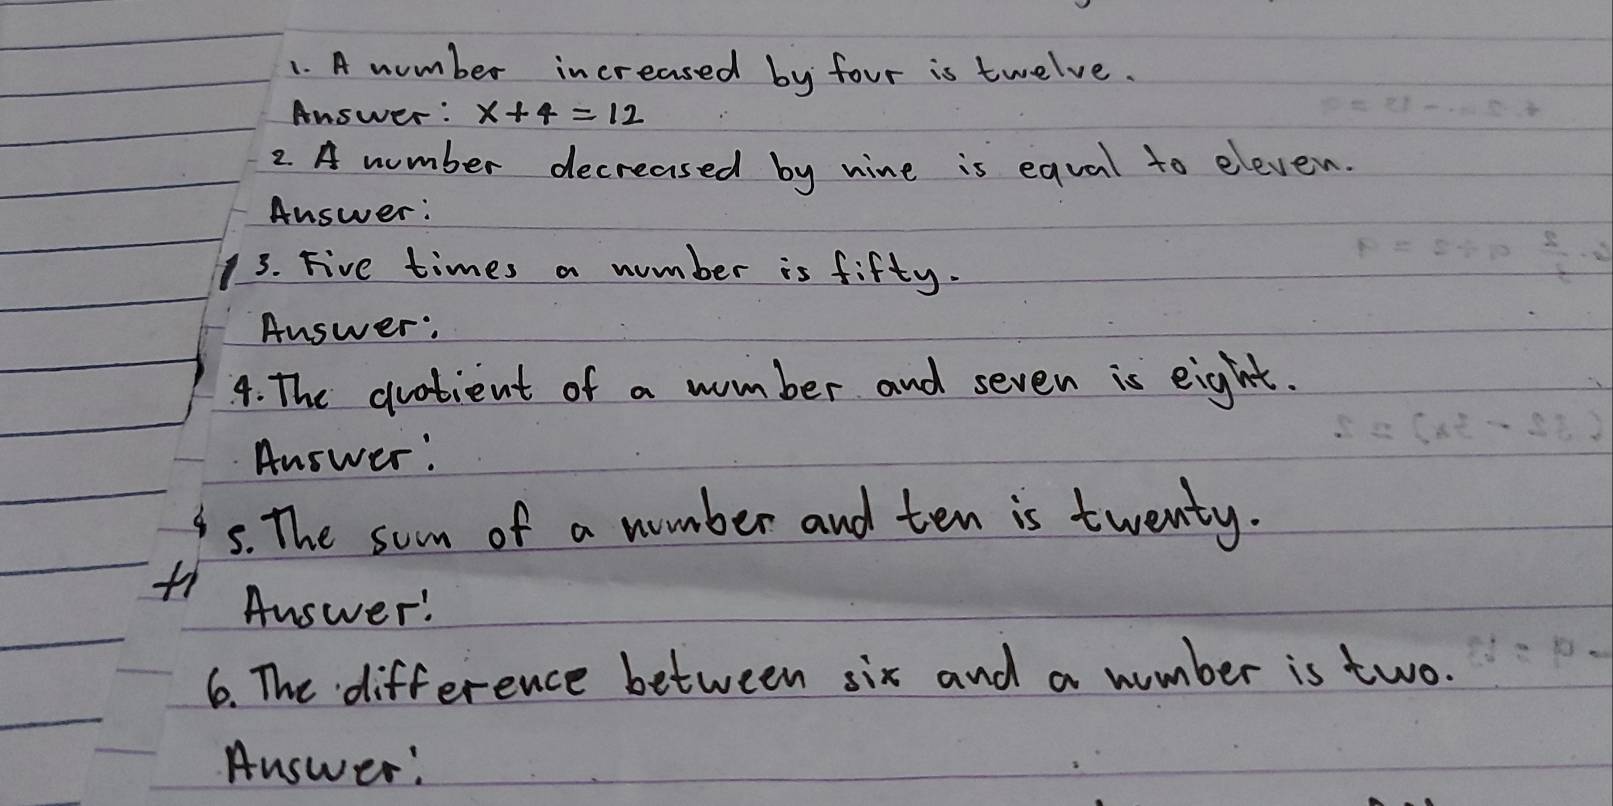 1. A number increased by four is twelve.
Answer: x+4=12
2. A number decreased by nine is equal to eleven.
Answer:
3. Five times a number is fifty.
Answer:
4. The quotient of a number and seven is eight.
Answer:
5. The sum of a number and ten is twenty.
Answer:
6. The difference between six and a number is two.
Answer: